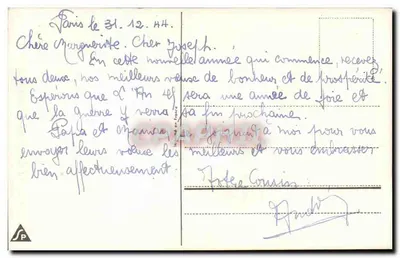 Paris le 31.12.44
Chère Marguerite. Cher Joseph.
En cette nouvelle année qui commence, recevez
tous deux, nos meilleurs vœux de bonheur et de prospérité.
Espérons que l'An 45 sera une année de joie et
que la guerre y verra sa fin prochaine.
Papa et maman se joignent à moi pour vous
envoyer leurs vœux les meilleurs et vous embrasser
bien affectueusement.
Votre Cousin